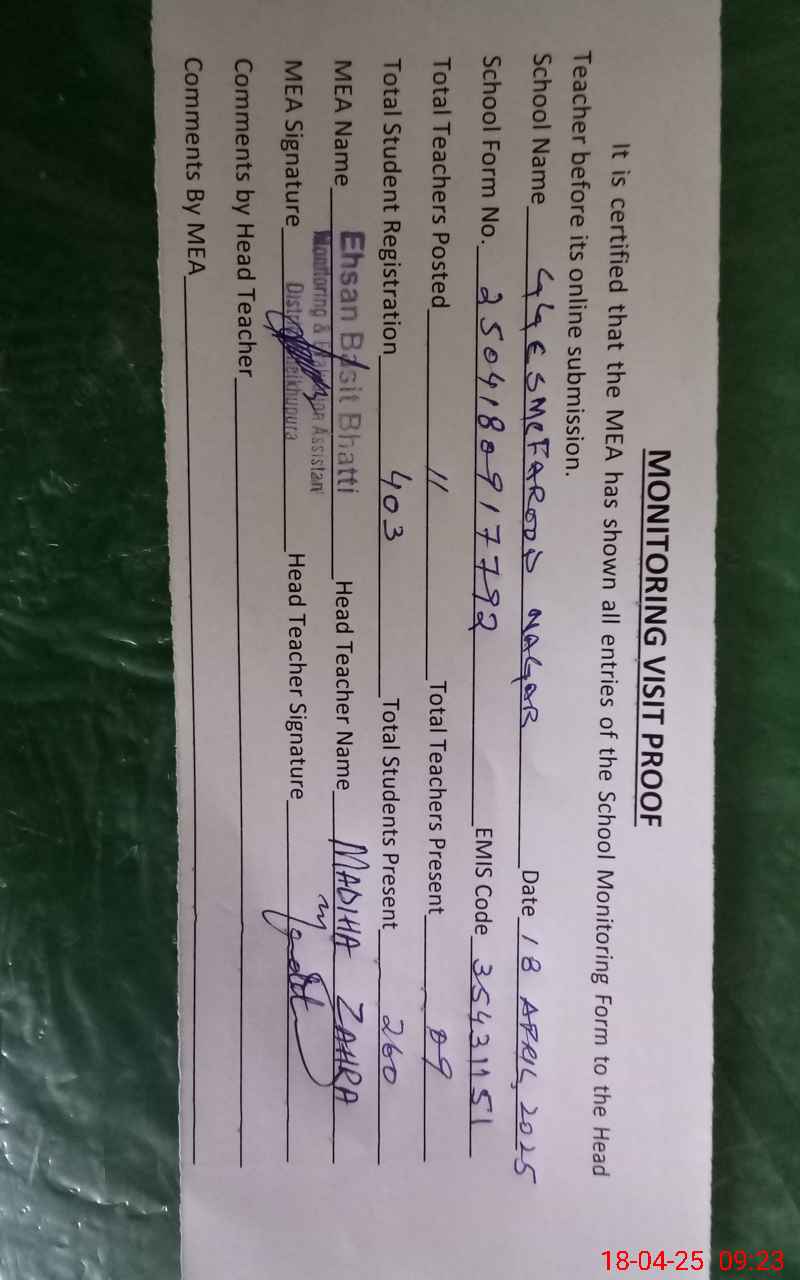 MONITORING VISIT PROOF
It is certified that the MEA has shown all entries of the School Monitoring Form to the Head
Teacher before its online submission.
School Name GGES MC FAROOQ NAGAR Date 18 APRIL, 2025
School Form No. 2504180917792 EMIS Code 35431151
Total Teachers Posted 11 Total Teachers Present 09
Total Student Registration 403 Total Students Present 260
MEA Name Ehsan Basit Bhatti Head Teacher Name MADIHA ZAHRA
Monitoring & Evaluation Assistant
MEA Signature Head Teacher Signature
District Sheikhupura
Comments by Head Teacher
Comments By MEA
18-04-25 09:23